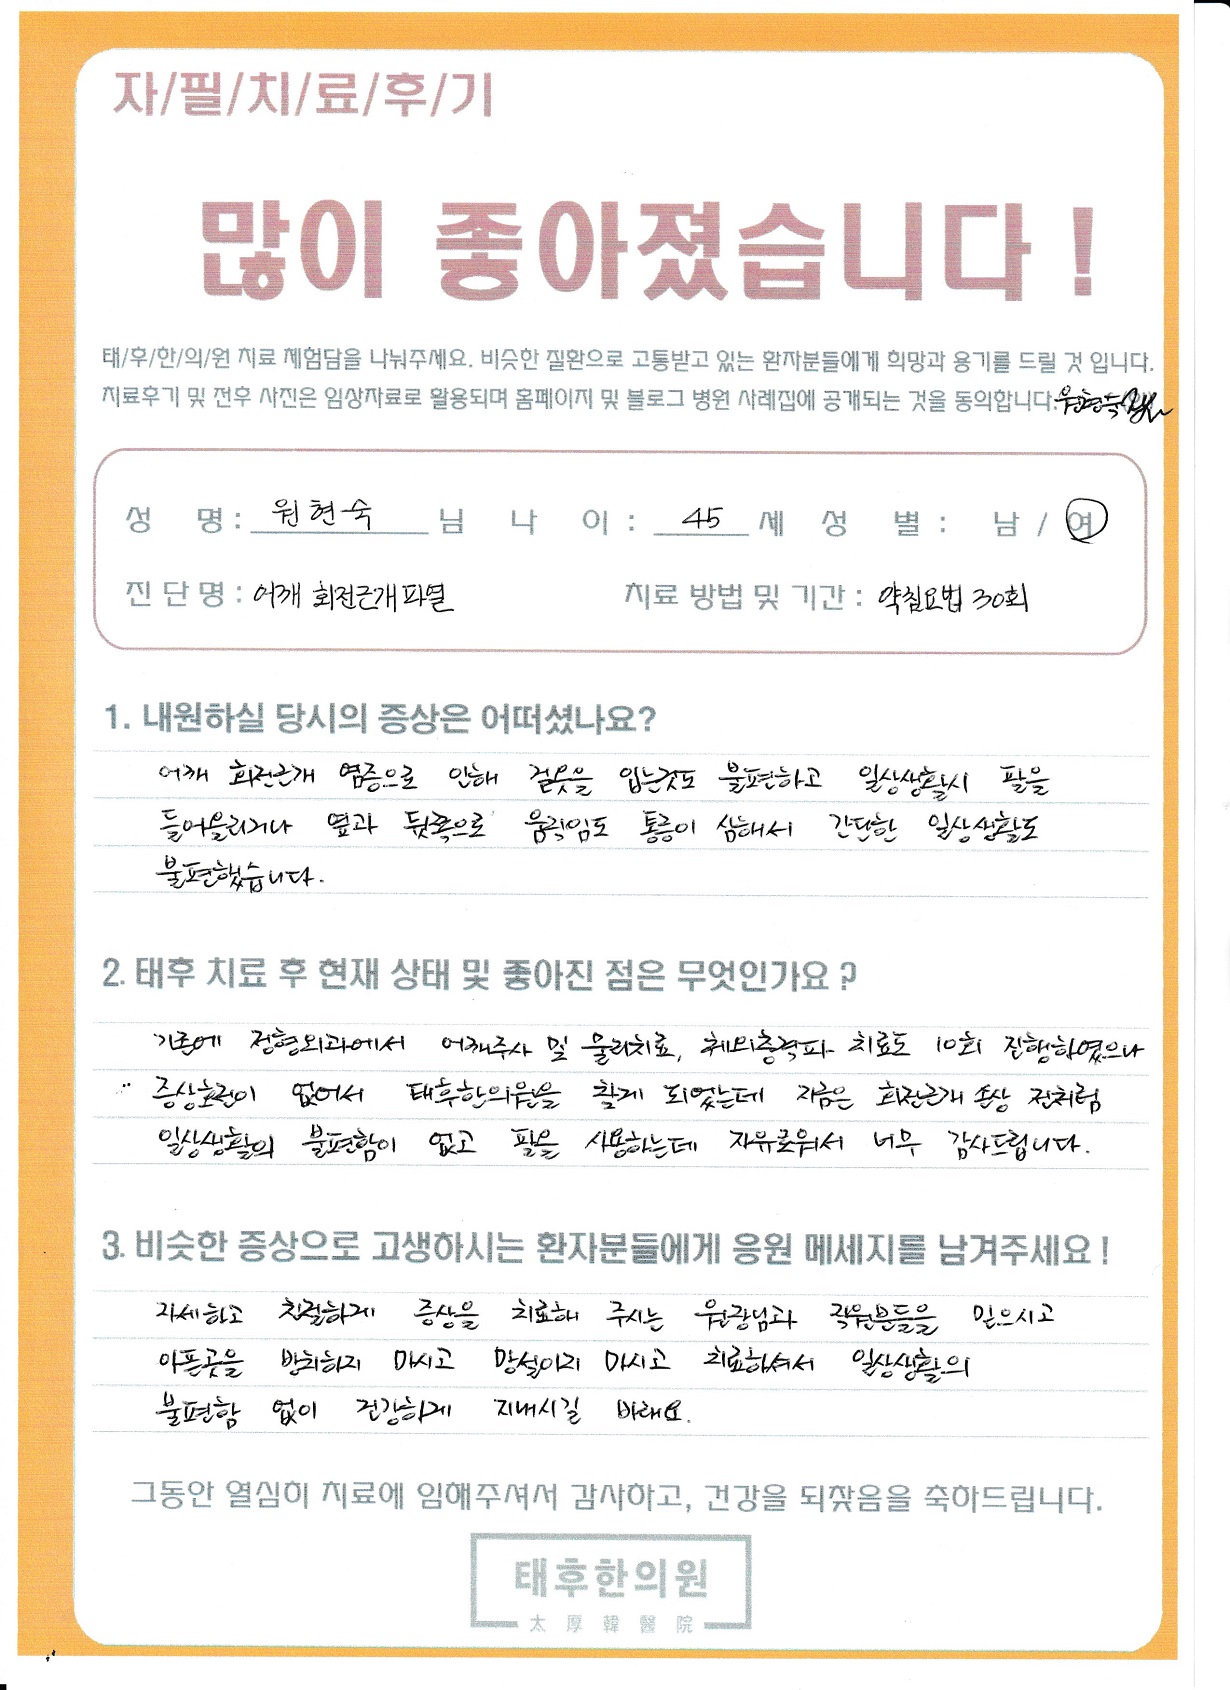 자/필/치/료/후/기
많이 좋아졌습니다!
태/후/한/의/원 치료 체험담을 나눠주세요. 비슷한 질환으로 고통받고 있는 환자분들에게 희망과 용기를 드릴 것 입니다.
치료후기 및 전후 사진은 임상자료로 활용되며 홈페이지 및 블로그 병원 사례집에 공개되는 것을 동의합니다. 원현숙
성 명: 원현숙 님 나 이: 45 세 성 별: 남 / 여
진단명: 어깨 회전근개파열 치료 방법 및 기간: 약침요법 30회
1. 내원하실 당시의 증상은 어떠셨나요?
어깨 회전근개 염증으로 인해 겉옷을 입는것도 불편하고 일상생활시 팔을
들어올리거나 옆과 뒷쪽으로 움직임도 통증이 심해서 간단한 일상생활도
불편했습니다.
2. 태후 치료 후 현재 상태 및 좋아진 점은 무엇인가요?
기존에 정형외과에서 어깨주사 및 물리치료, 체외충격파 치료도 10회 진행하였으나
증상호전이 없어서 태후한의원을 찾게 되었는데 지금은 회전근개 손상 전처럼
일상생활의 불편함이 없고 팔을 사용하는데 자유로워서 너무 감사드립니다.
3. 비슷한 증상으로 고생하시는 환자분들에게 응원 메세지를 남겨주세요!
자세하고 친절하게 증상을 치료해 주시는 원장님과 직원분들을 믿으시고
아픈곳을 방치하지 마시고 망설이지 마시고 치료하셔서 일상생활의
불편함 없이 건강하게 지내시길 바래요.
그동안 열심히 치료에 임해주셔서 감사하고, 건강을 되찾음을 축하드립니다.
태후한의원
太厚韓醫院